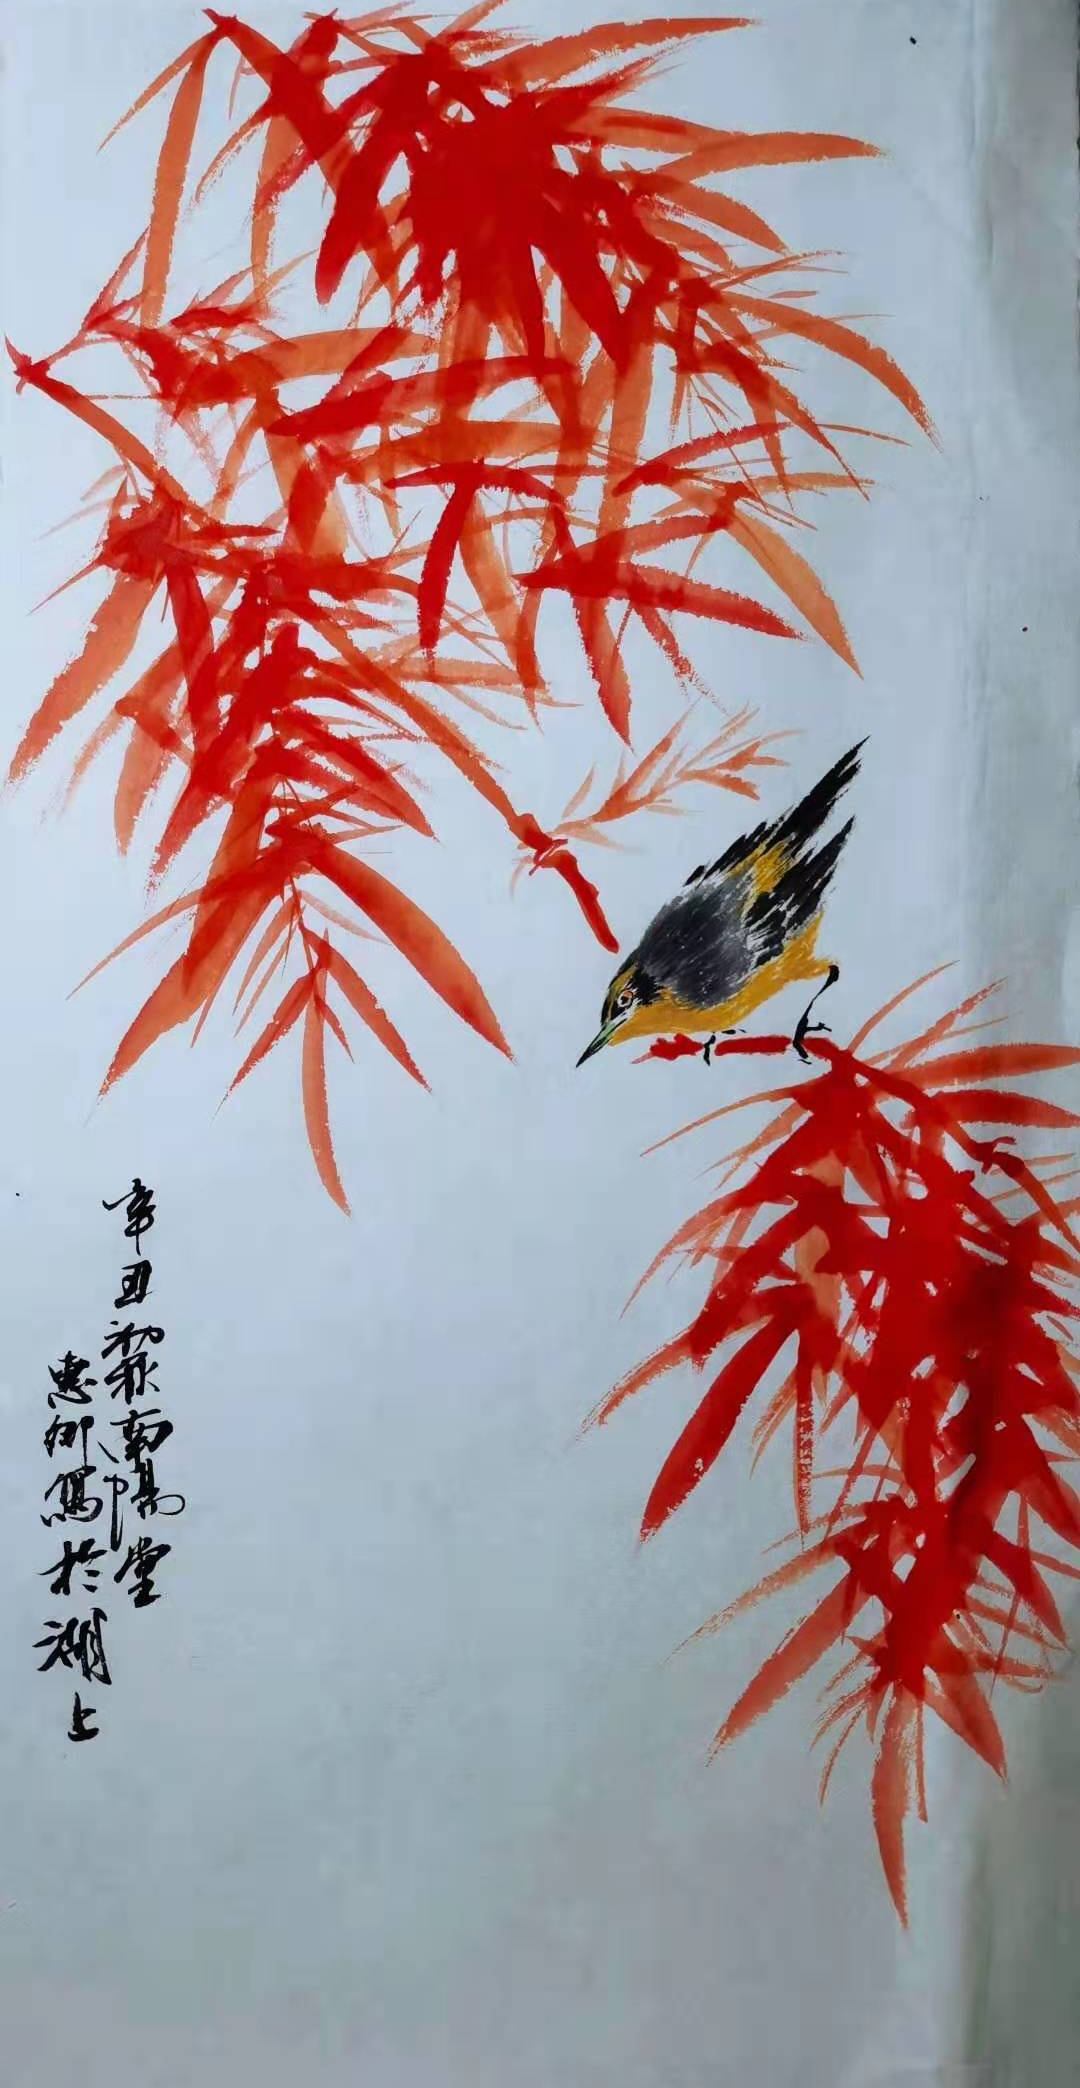 辛丑初秋南陽堂
惠卿寫於湖上